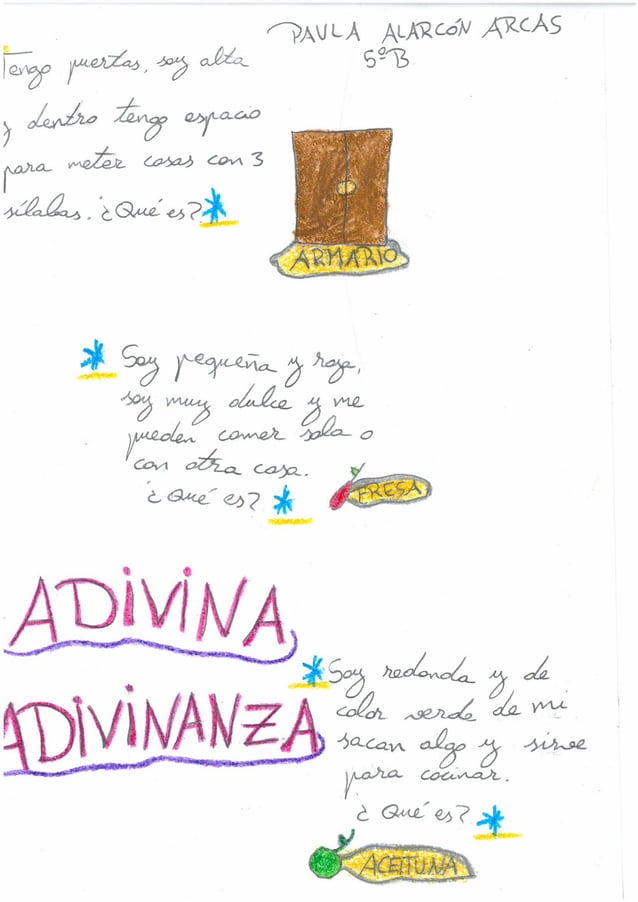 PAULA ALARCÓN ARCAS
5ºB
Tengo puertas, soy alta
y dentro tengo espacio
para meter cosas con 3
sílabas. ¿Qué es?
ARMARIO
Soy pequeña y roja,
soy muy dulce y me
pueden comer sola o
con otra cosa.
¿Qué es?
FRESA
ADIVINA
ADIVINANZA
Soy redonda y de
color verde de mi
sacan algo y sirve
para cocinar.
¿Qué es?
ACEITUNA